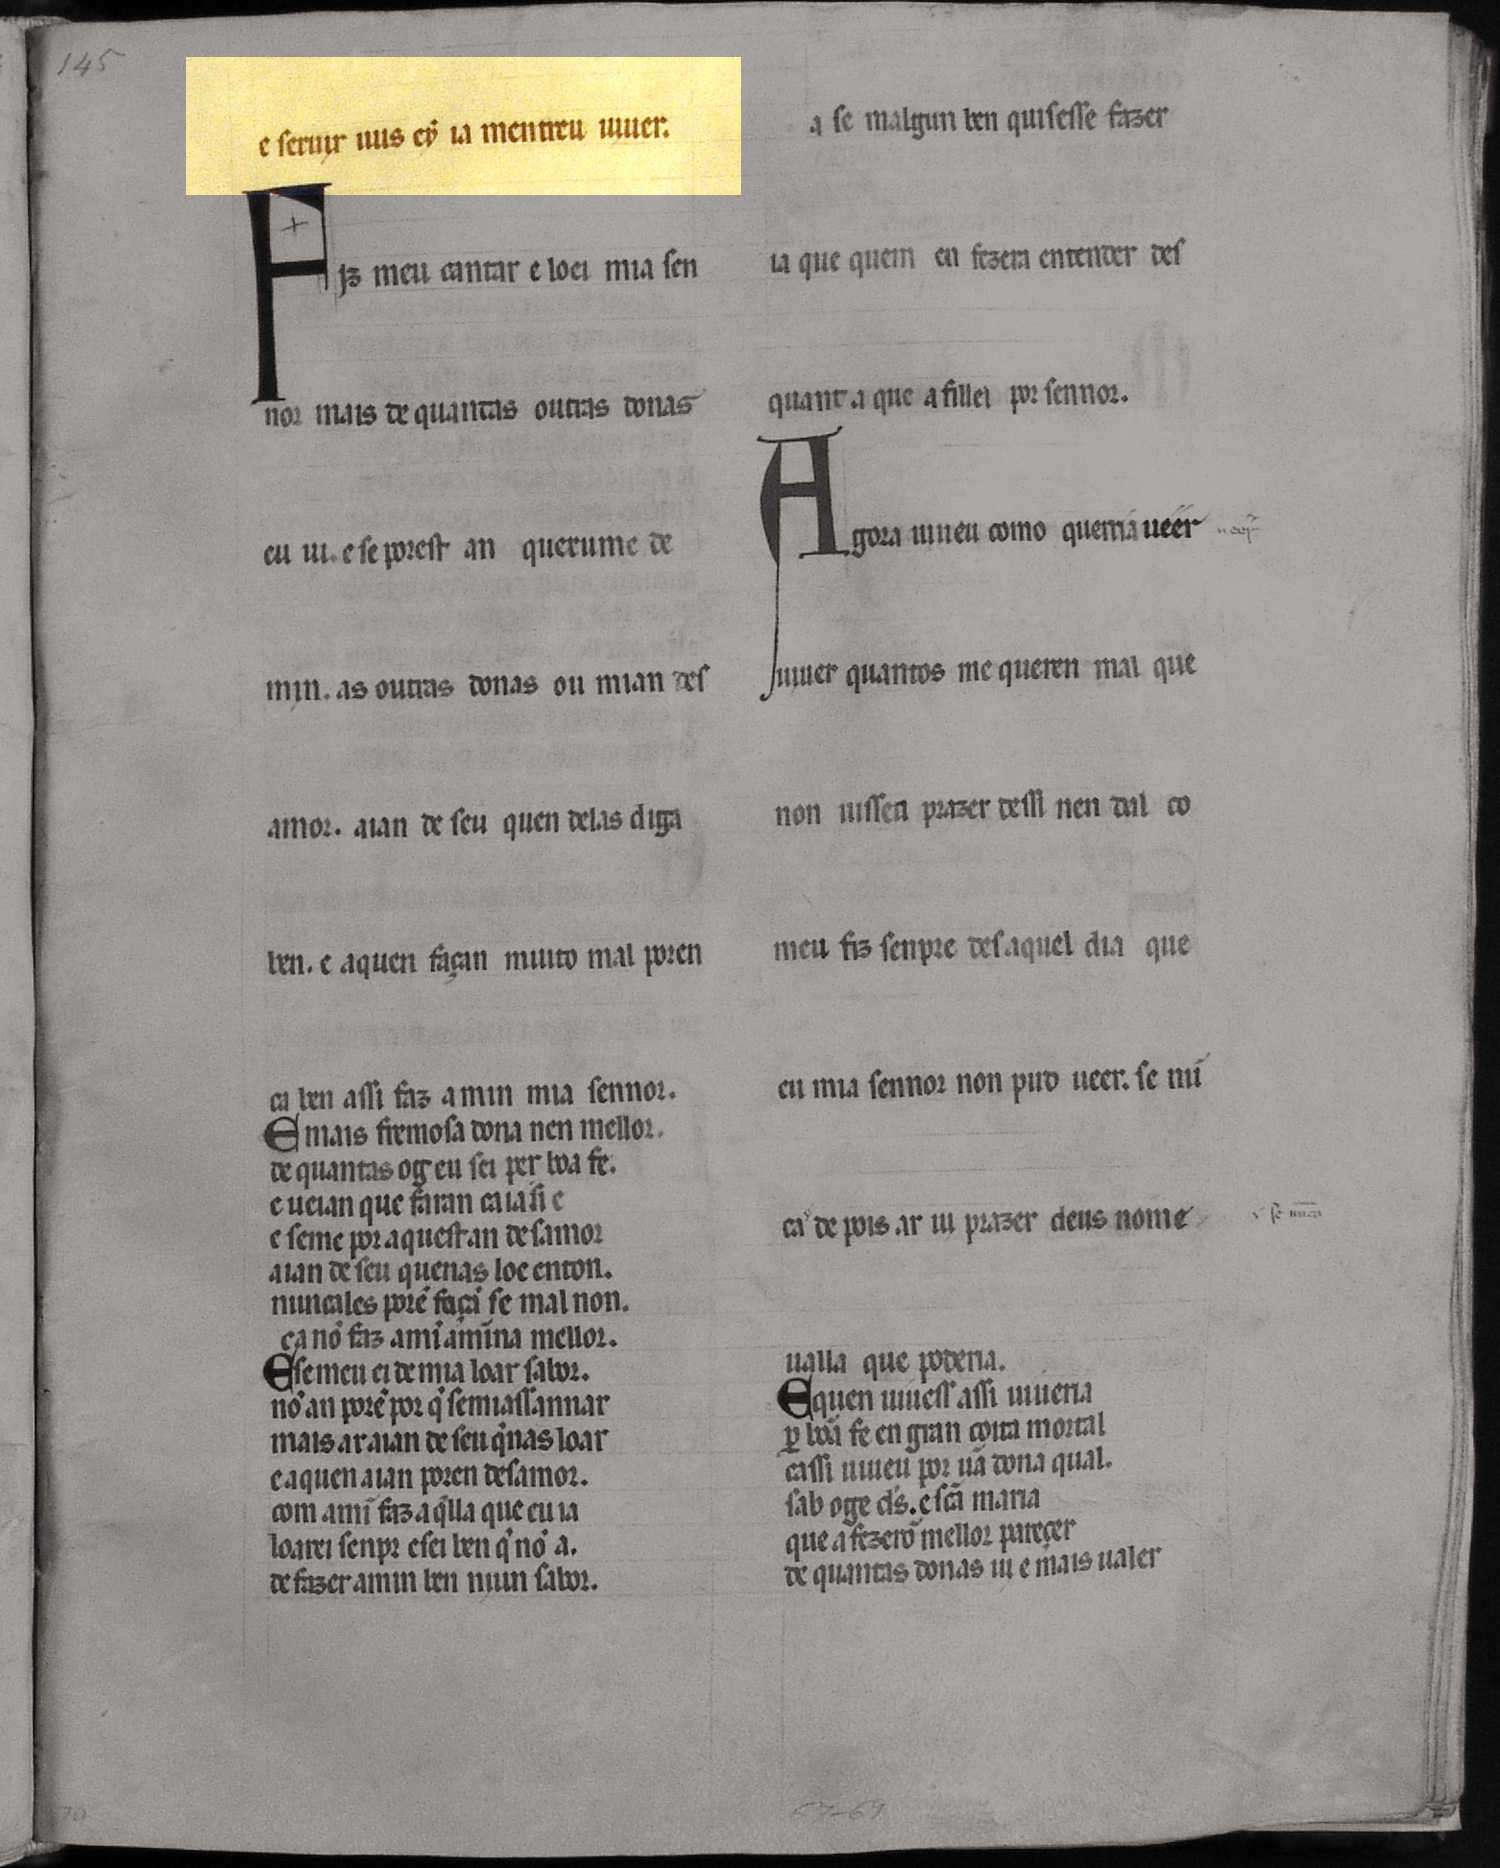 145
e seruir uus ey ia mentreu uiuer.
Fiz meu cantar e loei mia sen
nor mais de quantas outras donas
eu ui. e se porest an querume de
min. as outras donas ou mian des
amor. aian de seu quen delas diga
ben. e aquen façan muito mal poren
ca ben assi faz amin mia sennor.
E mais fremosa dona nen mellor.
de quantas og eu sei per boa fe.
e ueian que faran ca ia si e
e seme por aquest an desamor
aian de seu quenas loe enton.
nuncalles porẽ façã se mal non.
ca nõ faz amĩ amĩna mellor.
E semeu ei de mia loar sabor.
nõ an porẽ por q̃ sennassannar
mais ar aian de seu q̃nas loar
e aquen aian poren desamor.
com amĩ faz a q̃lla que eu ia
loarei senpr e sei ben q̃ nõ a.
de fazer amin ben niun sabor.
a se malgun ben quisesse fazer
ia que quem en fezera entender des
quant a que a fillei por sennor.
Agora uiueu como querria ueer
uiuer quantos me queren mal que
non uissen prazer dessi nen dal co
meu fiz senpre des aquel dia que
eu mia sennor non pud ueer. se nũ
ca de pois ar ui prazer deus nome
ualla que poderia.
E quen uiuess assi uiueria
ꝑ bõa fe en gran coita mortal
cassi uiueu por ũa dona qual.
sab oge ds̃. e scã maria
que a fezerõ mellor pareçer
de quantas donas ui e mais ualer
67-69